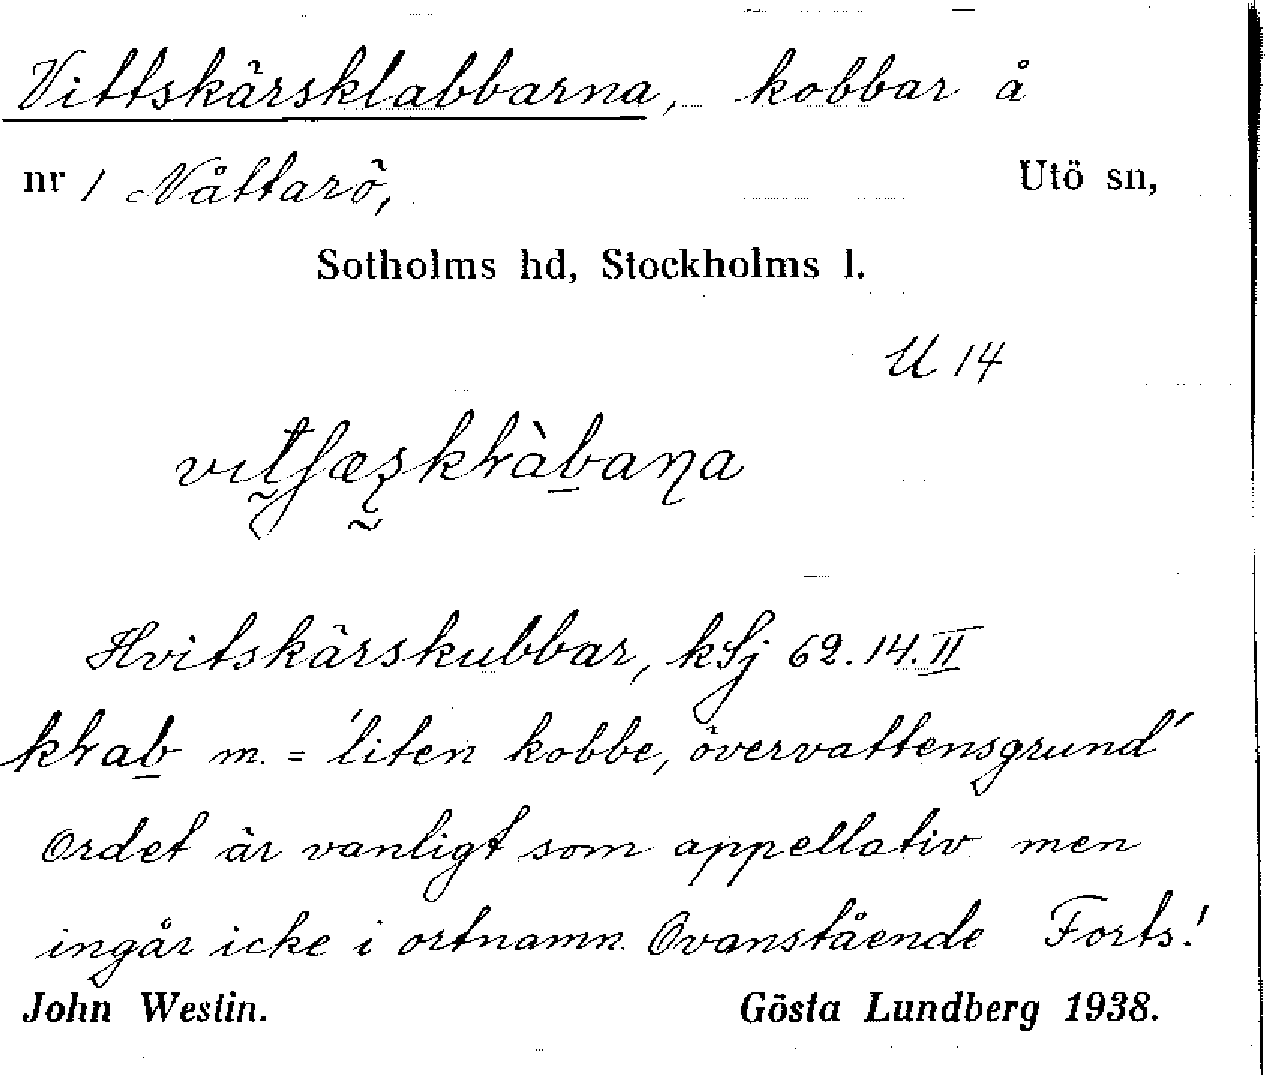 Vittskärsklabbarna, kobbar å
nr 1 Nåttarö, Utö sn,
Sotholms hd, Stockholms l.
U 14
Hvitskärskubbar, kSj 62.14.II
m. = 'liten kobbe, övervattensgrund'
Ordet är vanligt som appellativ men
ingår icke i ortnamn. Ovanstående Forts!
John Westin. Gösta Lundberg 1938.